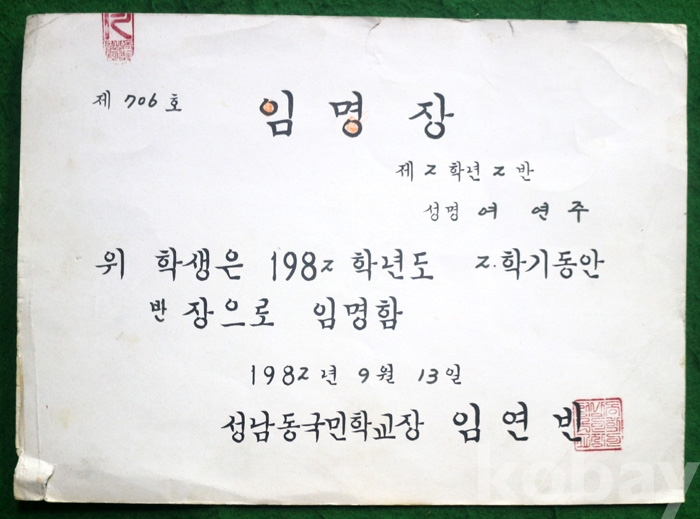 제 706 호
임 명 장
제 2 학년 2 반
성명 여 연 주
위 학생은 1982 학년도 2. 학기동안
반장으로 임명함
1982년 9월 13일
성남동국민학교장 임 연 빈
kobay